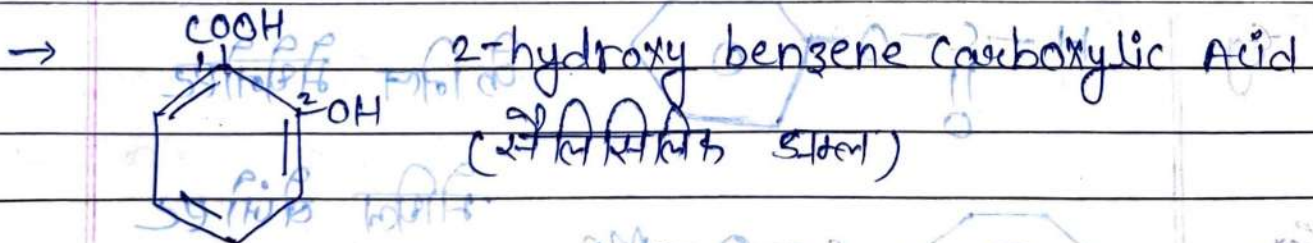 → COOH 2-hydroxy benzene Carboxylic Acid
1
2 OH
(सैलिसिलिक अम्ल)